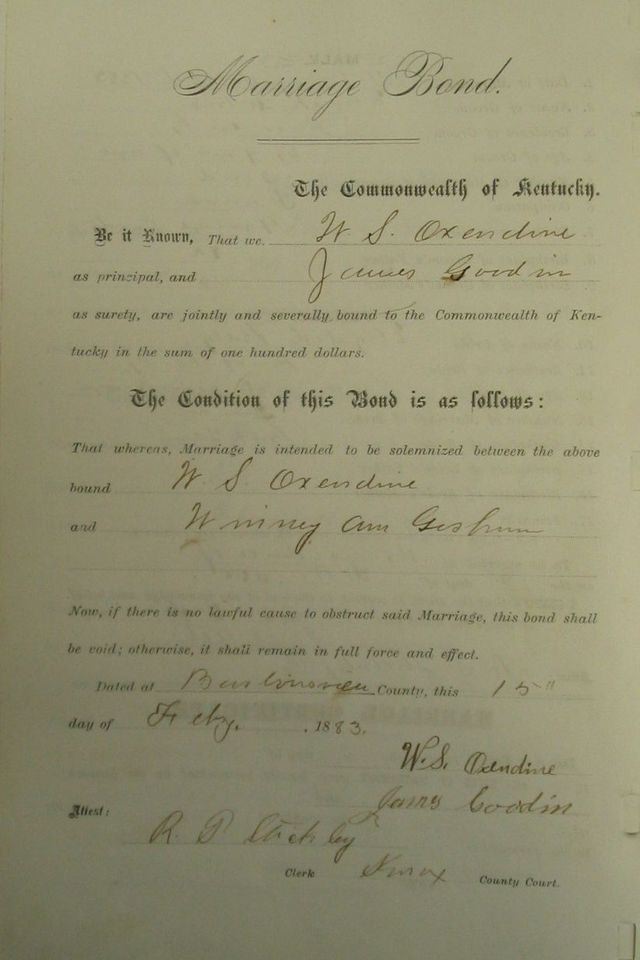 Marriage Bond.
The Commonwealth of Kentucky.
Be it Known, That we W S. Oxendine
as principal, and James Goodin
as surety, are jointly and severally bound to the Commonwealth of Ken-
tucky in the sum of one hundred dollars.
The Condition of this Bond is as follows:
That whereas, Marriage is intended to be solemnized between the above
bound W S Oxendine
and Winney Ann
Now, if there is no lawful cause to obstruct said Marriage, this bond shall
be void; otherwise, it shall remain in full force and effect.
Dated at County, this 15"
day of Feby. 1883.
W.S. Oxendine
James Goodin
Attest:
R. P.
Clerk Knox County Court.